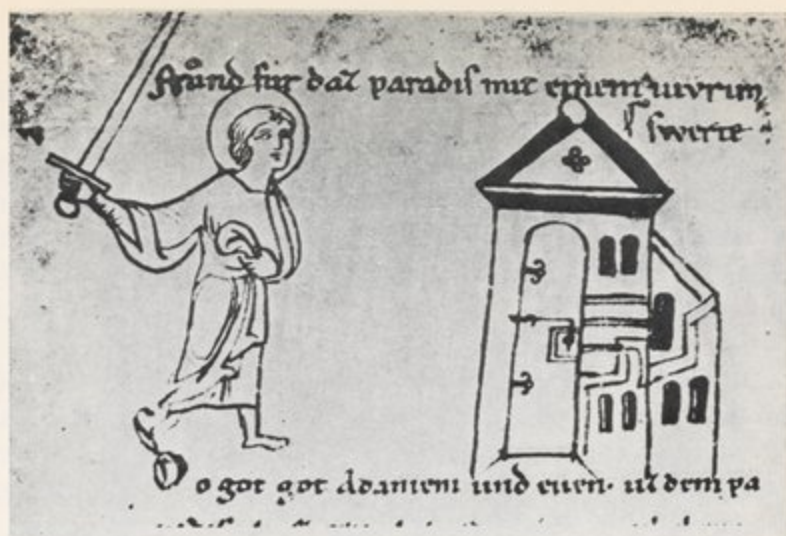 stuͦnd fur daz paradis mit einem viurim
swerte
o got got Adamem und even· uz dem pa